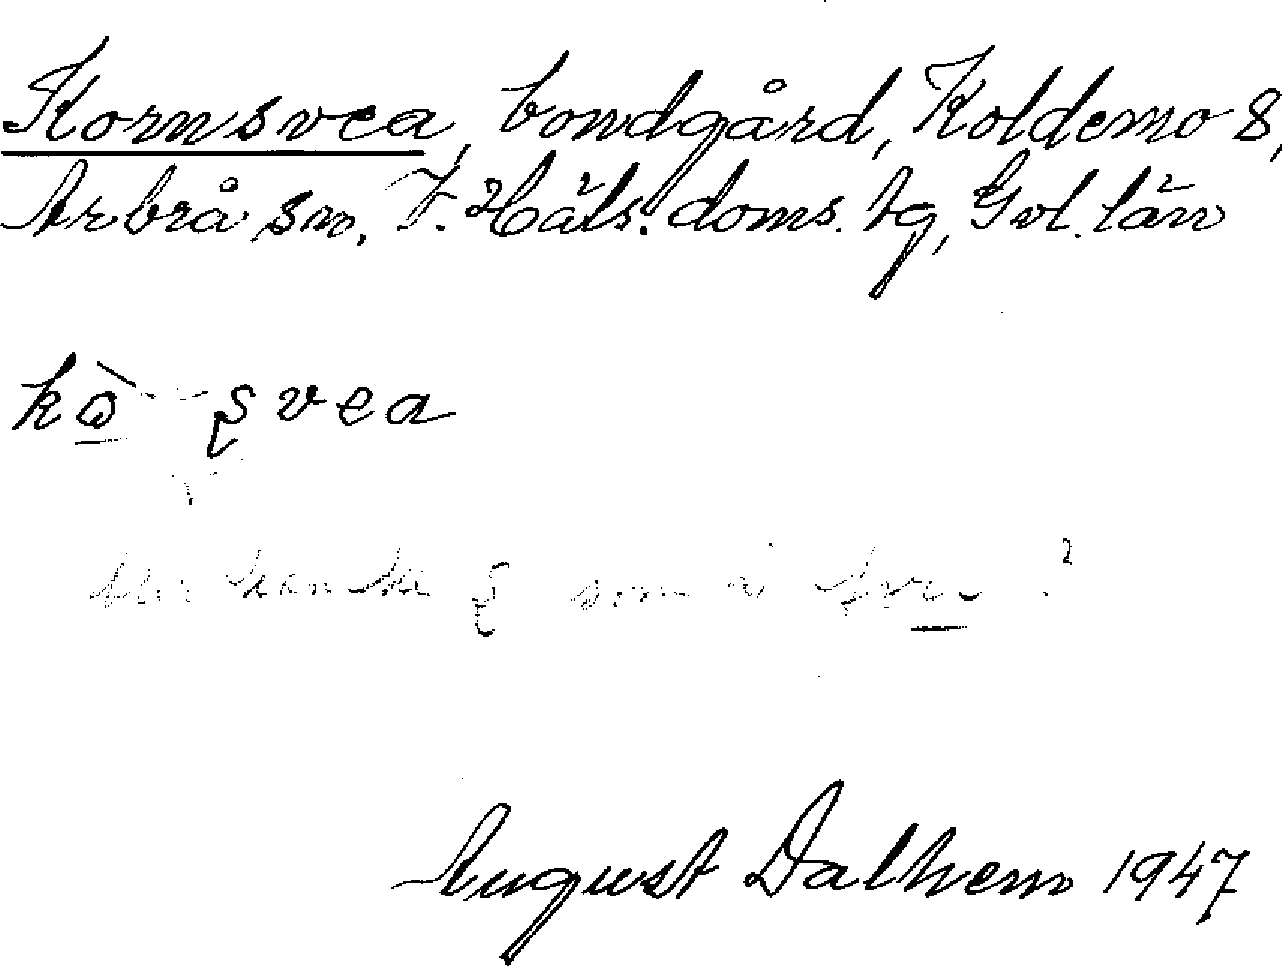 Kornsvea, bondgård, Koldemo 8,
Arbrå sn. V. Häls. doms. tg, Gvl. län
kò svea
som
August Dalhem 1947